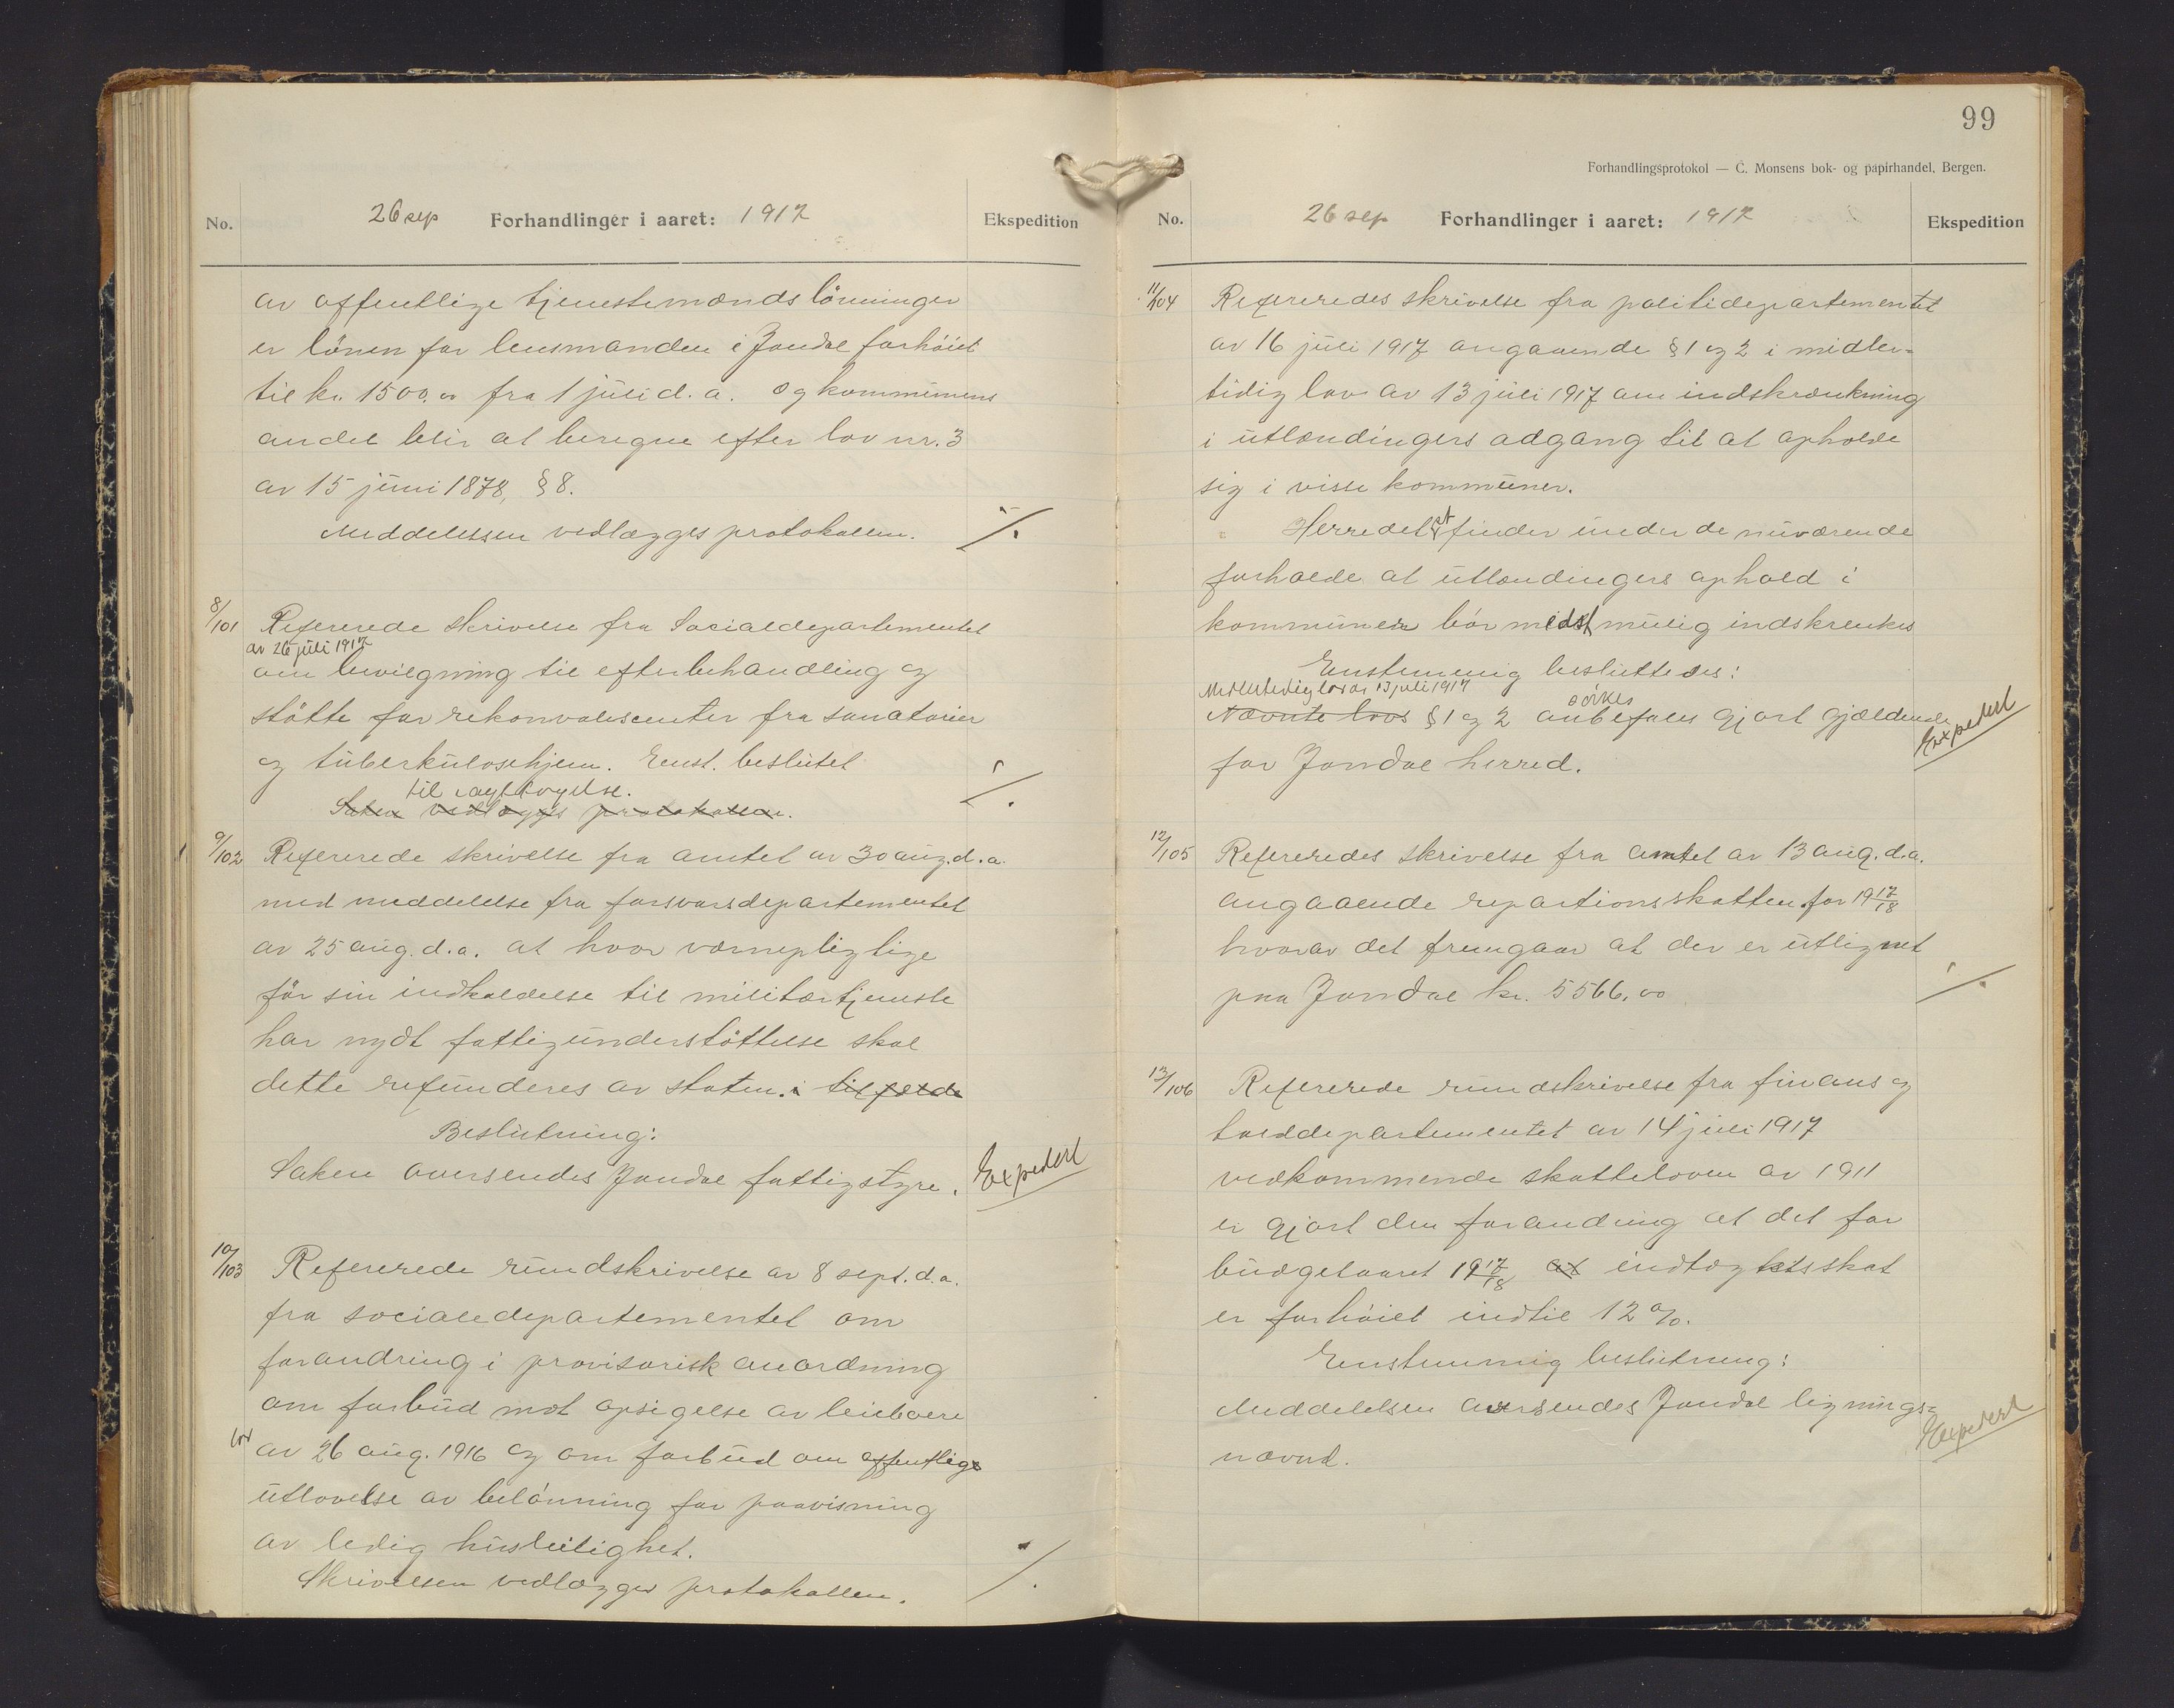 No. 26 sep Forhandlinger i aaret: 1917 Ekspedition
av offentlige tjenestemænds lönninger
er lönen for lensmanden i Jondal forhöiet
til kr. 1500.00 fra 1 juli d. a. og kommunens
andel blir at beregne efter lov nr. 3
av 15 juni 1878, § 8.
Meddelessen vedlægges protokollen. ./.
8/101 Refererede skrivelse fra Socialdepartementet
av 26 juli 1917
om bevilgning til efterbehandling og
stötte for rekonvalescenter fra sanatorier
og tuberkulosehjem. Enst. beslutet ./.
til iagttagelse.
Saken vedlægges protokollen.
9/102 Refererede skrivelse fra amtet av 30 aug. d. a.
med meddelelse fra forsvarsdepartementet
av 25 aug. d. a. at hvor værnepligtige
för sin indkaldelse til militærtjeneste
har nydt fattigunderstöttelse skal
dette refunderes av staten. i tilfælde
Beslutning:
Saken oversendes Jondal fattigstyre. Expedert
10/103 Refererede rundskrivelse av 8 sept. d. a.
fra socialedepartementet om
forandring i provisorisk anordning
om forbud mot opsigelse av leieboere
lov av 26 aug. 1916 og om forbud om offentlige
utlovelse av belönning for paavisning
av ledig husleilighet.
Skrivelsen vedlægges protokollen. ./.
99
Forhandlingsprotokol — C. Monsens bok- og papirhandel, Bergen.
No. 26 sep Forhandlinger i aaret: 1917 Ekspedition
11/104 Refereredes skrivelse fra politidepartementet
av 16 juli 1917 angaaende § 1 og 2 i midler=
tidig lov av 13 juli 1917 om indskrænkning
i utlændingers adgang til at opholde
sig i visse kommuner.
Herredet st finder under de nuværende
forholde at utlændingers ophold i
kommunen bör midst mulig indskrenkes
Enstemmig besluttedes:
Midlertidig lov av 13 juli 1917 sökes
Nævnte lovs § 1 og 2 anbefales gjort gjældende Expedert
for Jondal herred.
12/105 Refereredes skrivelse fra amtet av 13 aug. d. a.
angaaende repartionsskatten for 1917/18
hvorav det fremgaar at der er utlignet
paa Jondal kr. 5566,00 ./.
13/106 Refererede rundskrivelse fra finans og
tolddepartementet av 14 juli 1917
vedkommende skatteloven av 1911
er gjort den forandring at det for
budgetaaret 1917/18 at indtægtsskat
er forhöiet indtil 12 %.
Enstemmig beslutning:
Meddelelsen oversendes Jondal lignings=
nævnd. Expedert